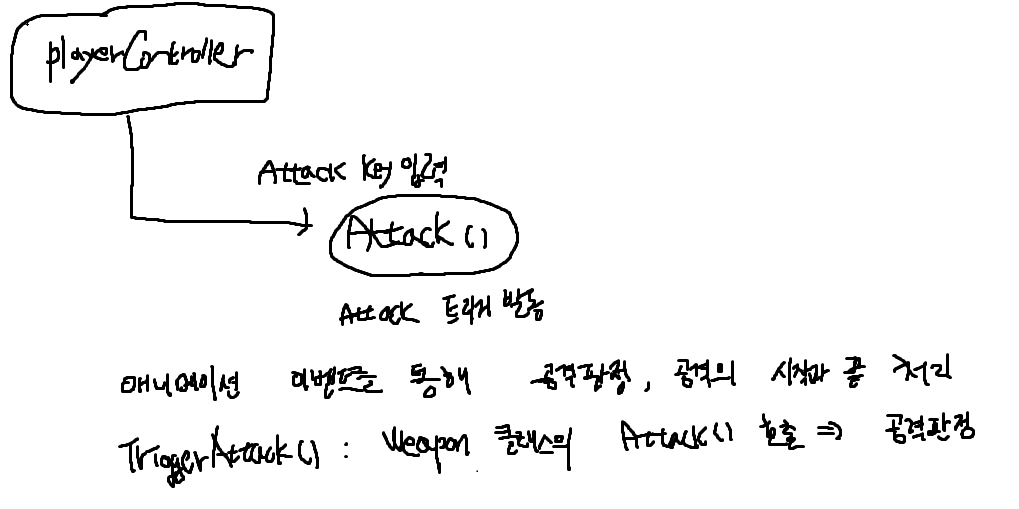 playerController
Attack key 입력
Attack()
Attack 트리거 발동
애니메이션 이벤트를 통해 공격판정, 공격의 시작과 끝 처리
TriggerAttack() : Weapon 클래스의 Attack() 호출 ⇒ 공격판정